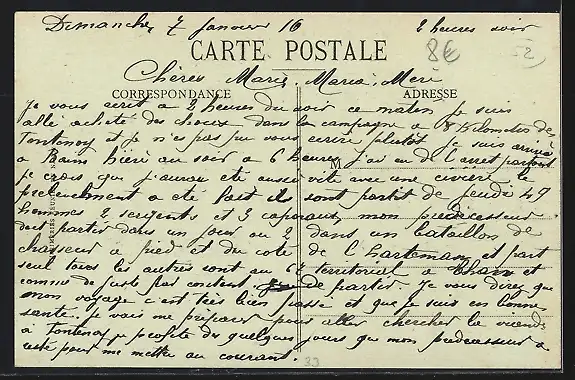 Dimanche 2 Janvier 16 2 heures soir
8€
CARTE POSTALE
Chères Marie, Maria, Meri
CORRESPONDANCE ADRESSE
Je vous ecrit a 2 heures du soir ce matin je suis
allé acheté des choux dans la campagne a 8 Kilometres de
Fontenoy et je n'es pas pu vous ecrire plutôt je suis arrivé
a Bains hier au soir a 6 heures j'ai eu de l'arret partout
je crois que j'aurai ete aussi vite avec une civiere le
prelevement a ete fait ils sont partit de jeudi 49
hommes 2 sergents et 3 caporaux, mon predecesseur
doit partir dans un jour ou 2 dans un bataillon de
chasseur a pied et du coté de de l'Harteman et part
seul tous les autres vont au territorial a Thann et
comme de juste pas content de partir. Je vous direz que
mon voyage c'est tres bien passé et que je suis en bonne
santé. je vais me préparer pour aller chercher la viande
a Fontenoy je profite des quelques jours que mon predecesseur a
resté pour me mettre au courant.
33